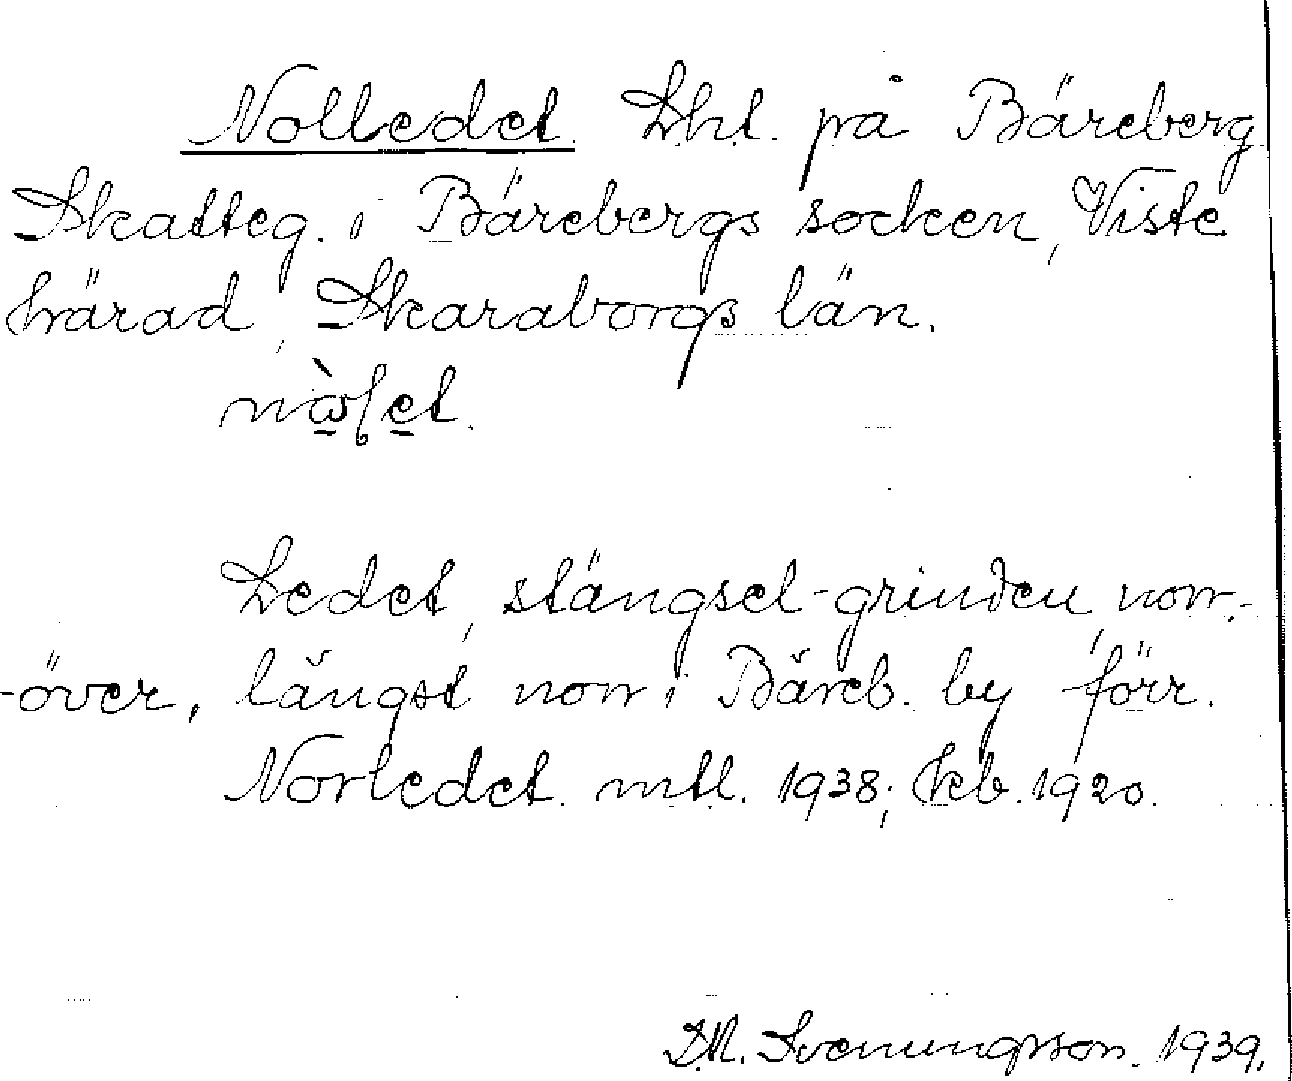 Nolledet. Lht. på Bäreberg
Skatteg. i Bärebergs socken, Viste
härad, Skaraborgs län.

Ledet, stängsel-grinden, norr-
-över, längst norr i Bäreb. by förr.
Norledet. mtl. 1938; kb. 1920.
Svenungsson. 1939.